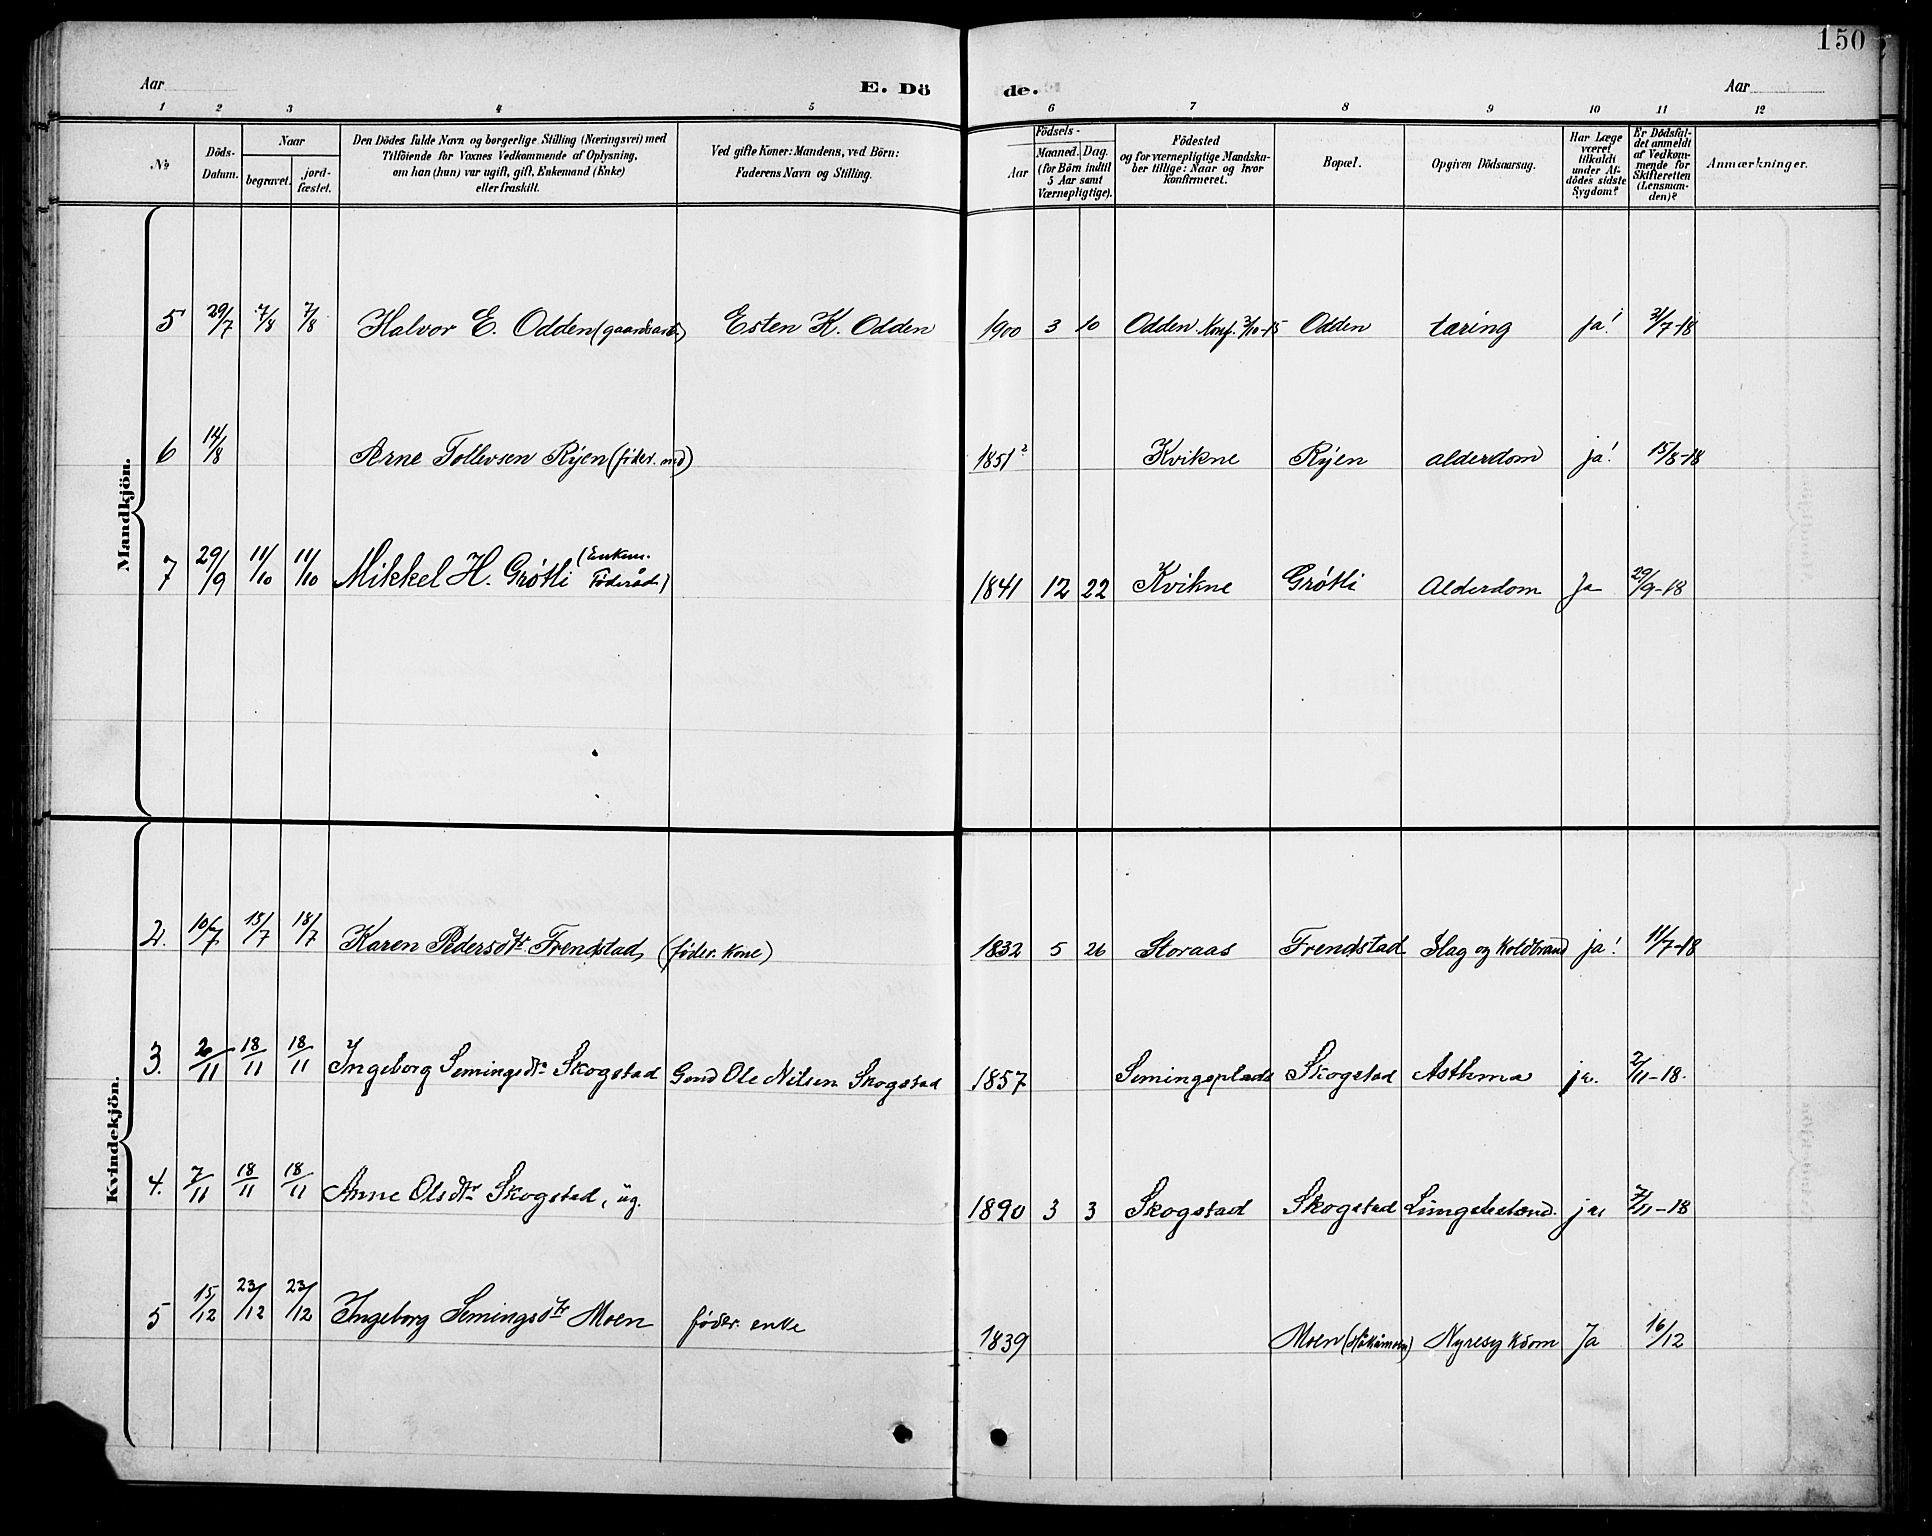 150
Aar
E. Döde.
Aar
1 2 3 4 5 6 7 8 9 10 11 12
No
Döds-Datum.
Naar
begravet.
jordfæstet.
Den Dödes fulde Navn og borgerlige Stilling (Næringsvei) med
Tilföiende for Voxnes Vedkommende af Oplysning,
om han (hun) var ugift, gift, Enkemand (Enke)
eller fraskilt.
Ved gifte Koner: Mandens, ved Börn:
Faderens Navn og Stilling.
Födsels-
Aar
Maaned. Dag.
(for Börn indtil
5 Aar samt
Værnepligtige).
Födested
og for værnepligtige Mandskaber tillige: Naar og hvor
konfirmeret.
Bopæl.
Opgiven Dödsaarsag.
Har Læge
været
tilkaldt
under Afdödes sidste
Sygdom?
Er Dödsfaldet anmeldt
af Vedkommende for
Skifteretten
(Lensmanden)?
Anmærkninger.
Mandkjön.
5 29/7 7/8 7/8 Halvor E. Odden (gaardsarb.) Esten K. Odden 1900 3 10 Odden Konf. 3/10-15 Odden tæring ja! 31/7-18
6 14/8 Arne Tollevsen Ryen (föder.md) 1851 2 Kvikne Ryen alderdom ja! 15/8-18
7 29/9 11/10 11/10 Mikkel H. Grøtli (Enkem. Föderåd.) 1841 12 22 Kvikne Grøtli Alderdom Ja 29/9-18
Kvindekjön.
2. 10/7 18/7 18/7 Karen Pedersdtr Frendstad, (föder. kone) 1832 5 26 Storaas Frendstad Slag og Koldbrand ja! 11/7-18
3. 2/11 18/11 18/11 Ingeborg Semingsdtr Skogstad Gmd Ole Nilsen Skogstad 1857 Semingsplads Skogstad Asthma ja. 2/11-18.
4. 7/11 18/11 18/11 Anne Olsdtr Skogstad, ug. 1890 3 3 Skogstad Skogstad ja 7/11-18
5 15/12 23/12 23/12 Ingeborg Semingsdtr Moen föder. enke 1839 Moen Nyresykdom Ja 16/12